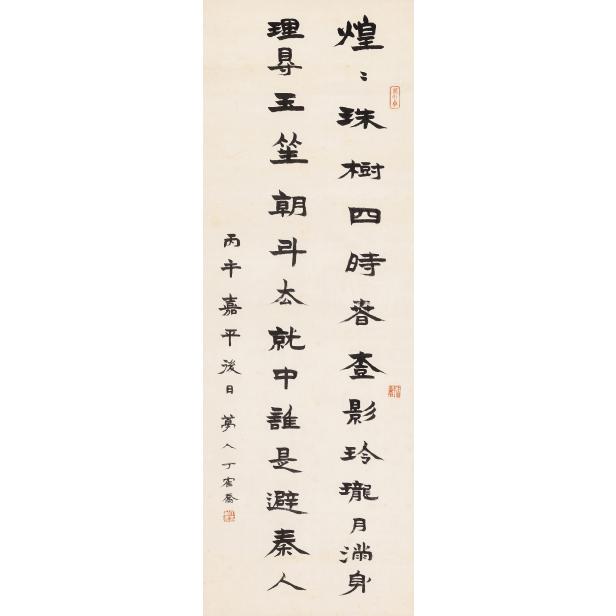 煌〻珠樹四時春影玲瓏月滿身
理㝵玉笙朝斗厺就中誰是避秦人
丙午嘉平後日人丁寉